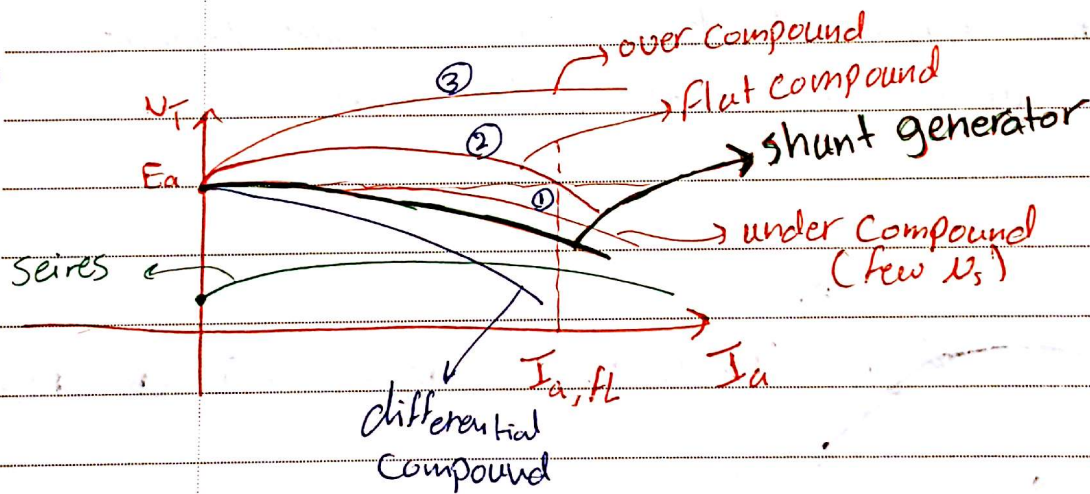 over compound
③
flat compound
V_T
②
shunt generator
Ea
①
under compound
(few N_s)
seires
I_a,fL
I_a
differential
compound